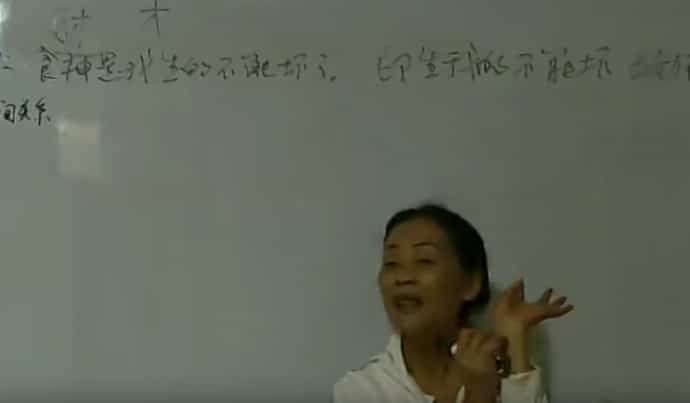 才
食神是我生的不能坏了。 印生我的不能坏
间关系